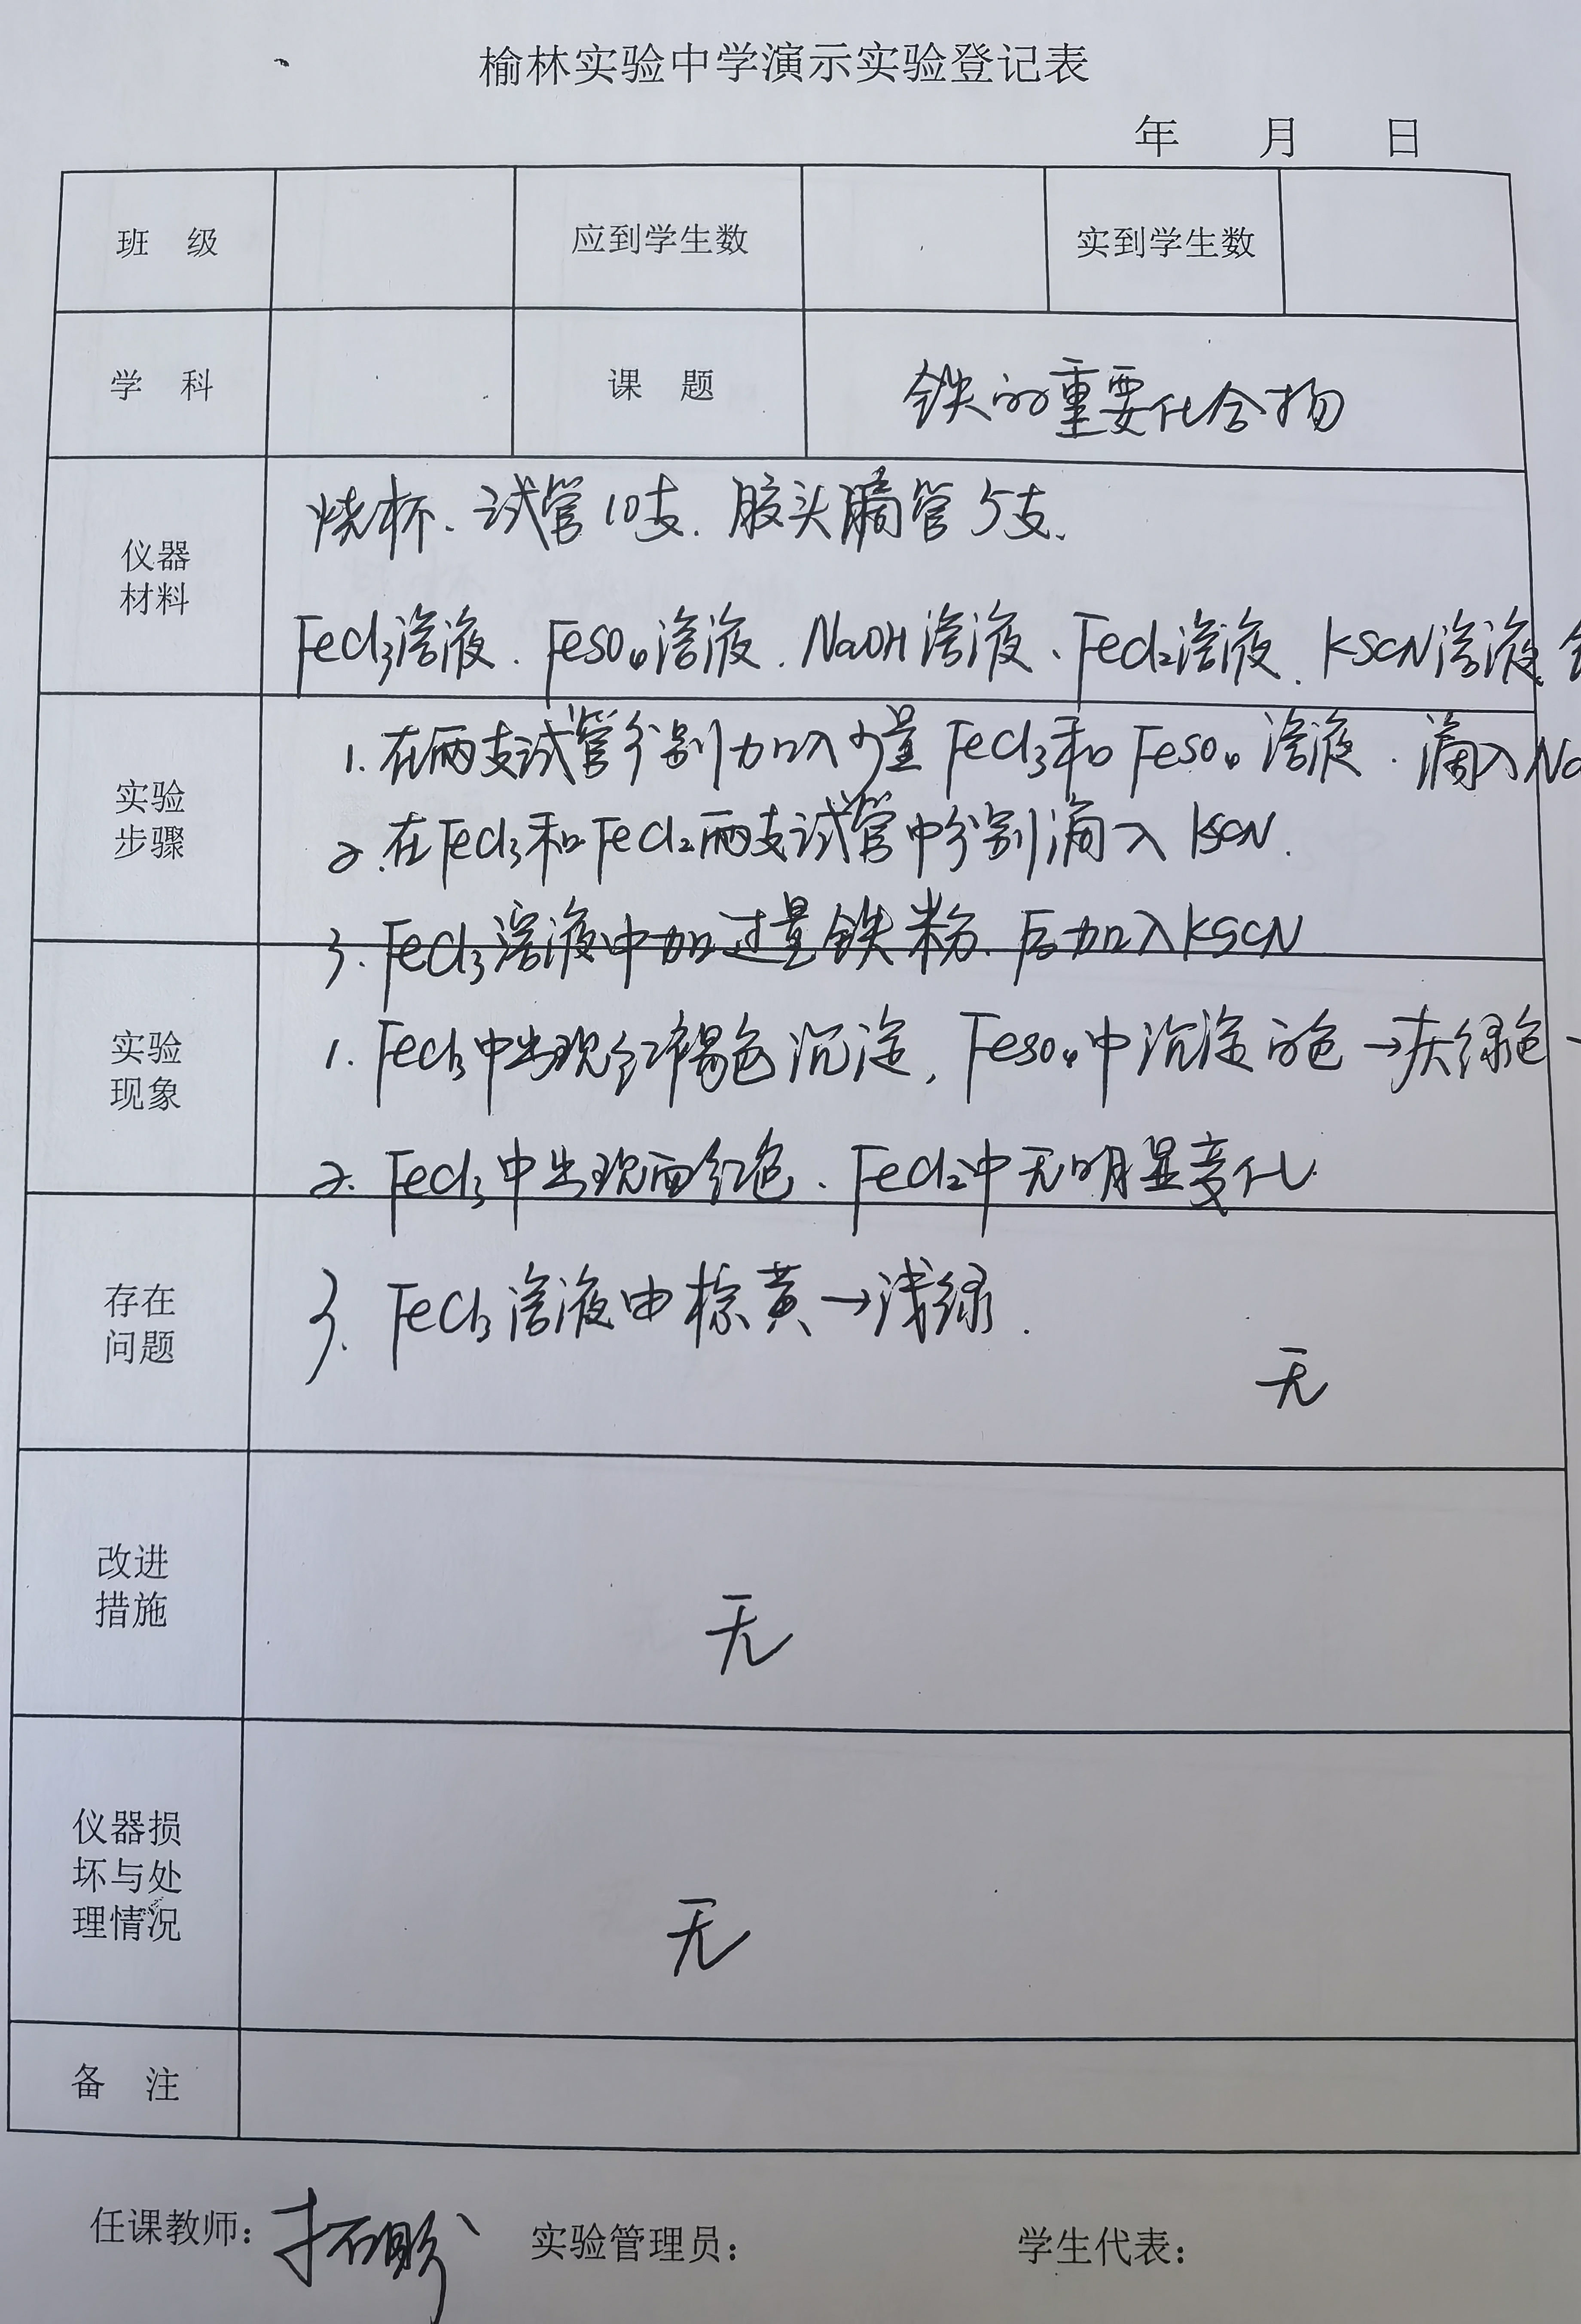 榆林实验中学演示实验登记表
年 月 日
班 级 应到学生数 实到学生数
学 科 课 题 铁的重要化合物
仪器
材料
烧杯、试管10支、胶头滴管5支、
FeCl₃溶液、FeSO₄溶液、NaOH溶液、FeCl₂溶液、KSCN溶液
实验
步骤
1. 在两支试管分别加入少量FeCl₃和FeSO₄溶液. 滴入Na
2. 在FeCl₃和FeCl₂两支试管中分别滴入KSCN.
3. FeCl₃溶液中加过量铁粉、后加入KSCN
实验
现象
1. FeCl₃中出现红褐色沉淀, FeSO₄中沉淀白色→灰绿色→
2. FeCl₃中出现血红色、FeCl₂中无明显变化.
3. FeCl₃溶液由棕黄→浅绿.
存在
问题
无
改进
措施
无
仪器损
坏与处
理情况
无
备 注
任课教师: 实验管理员: 学生代表: